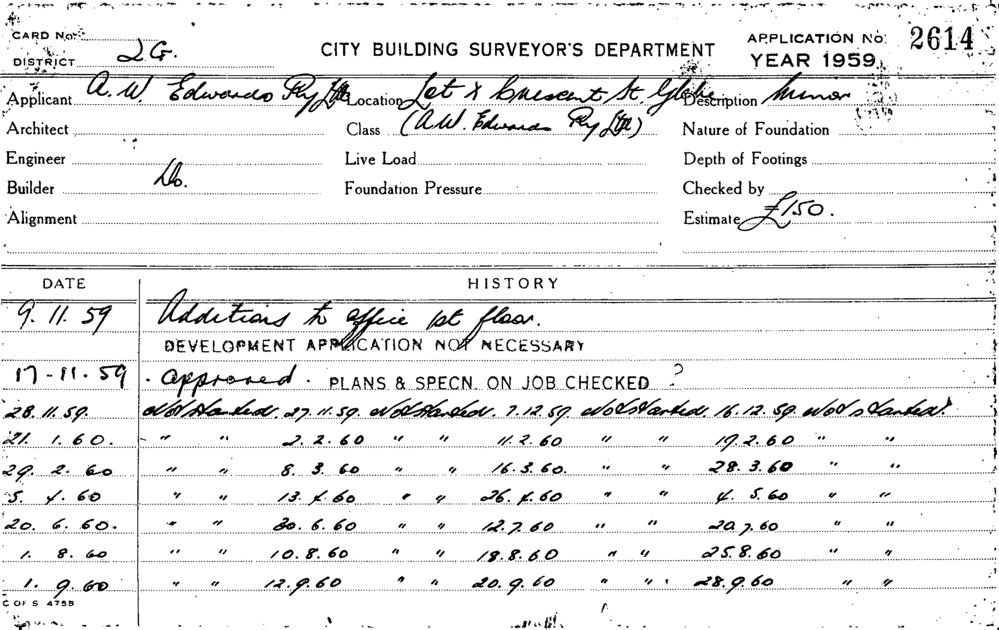 CARD No. CITY BUILDING SURVEYOR'S DEPARTMENT APPLICATION No. 2614
DISTRICT 2G. YEAR 1959
Applicant A. W. Edwards Pty Ltd Location Lot X Crescent St. Glebe Description Minor
Architect Class (A.W. Edwards Pty Ltd) Nature of Foundation
Engineer Live Load Depth of Footings
Builder Do. Foundation Pressure Checked by
Alignment Estimate £150.
DATE HISTORY
9. 11. 59 Additions to office 1st floor.
DEVELOPMENT APPLICATION NOT NECESSARY
17-11-59 . approved . PLANS & SPECN. ON JOB CHECKED ?
28.11.59. Not Started. 27.11.59. Not Started. 7.12.59. Not Started. 16.12.59. Not Started.
21. 1. 60. " " 2. 2. 60 " " 11. 2. 60 " " 19. 2. 60 " "
29. 2. 60 " " 8. 3. 60 " " 16. 3. 60. " " 28. 3. 60 " "
5. 4. 60 " " 13. 4. 60 " " 26. 4. 60 " " 4. 5. 60 " "
20. 6. 60. " " 30. 6. 60 " " 12. 7. 60 " " 20. 7. 60 " "
1. 8. 60 " " 10. 8. 60 " " 18. 8. 60 " " 25. 8. 60 " "
1. 9. 60 " " 12. 9. 60 " " 20. 9. 60 " " 28. 9. 60 " "
C OF S 4755